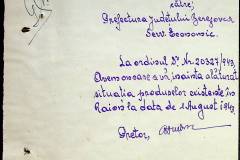 către,
Prefectura Județului Berezovca
Serv. Economic.
La ordinul Dv. Nr. 20327/943,
Avem onoare a vă înainta alăturat
situația produselor existente în
Raion la data de 1 August 1943
Pretor,